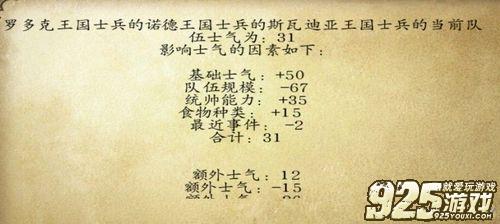 罗多克王国士兵的诺德王国士兵的斯瓦迪亚王国士兵的当前队
伍士气为：31
影响士气的因素如下：
基础士气：+50
队伍规模：-67
统帅能力：+35
食物种类：+15
最近事件：-2
合计：31
额外士气：12
额外士气：-15
925游戏
就爱玩游戏
925youxi.com